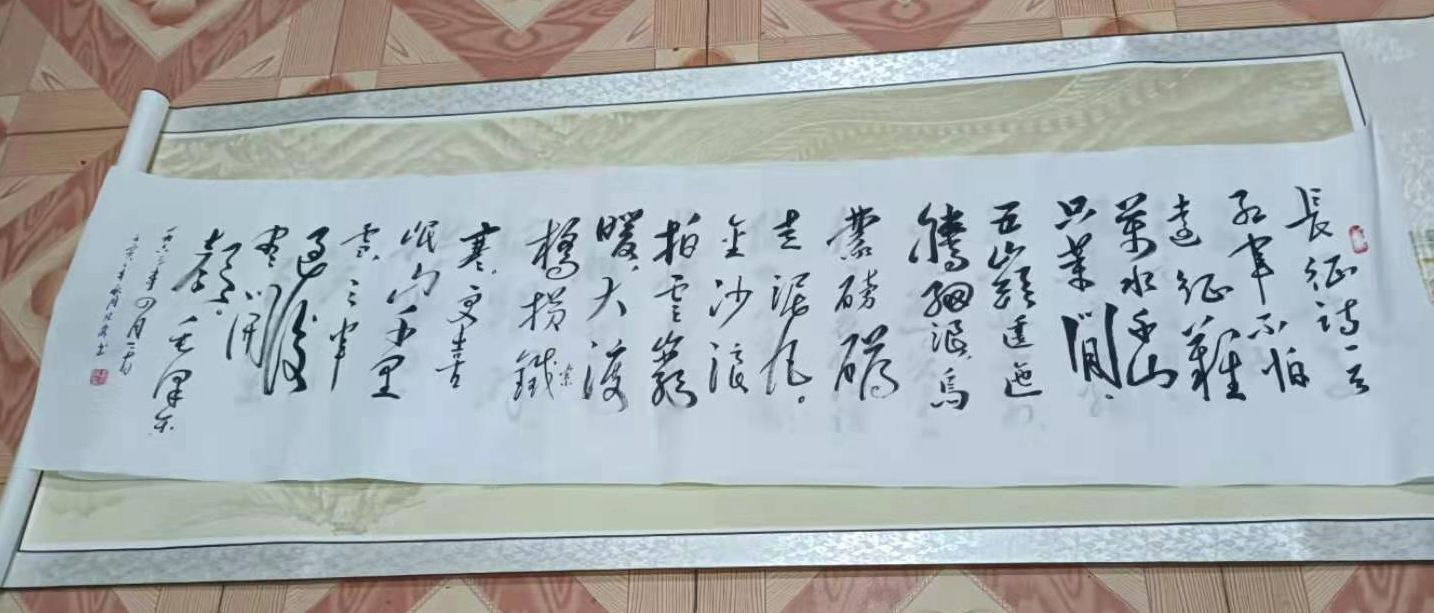 長征詩一首
紅軍不怕
遠征難
萬水千山
只等閒。
五嶺逶迤
騰細浪,烏
蒙磅礴
走泥丸。
金沙浪
拍雲崖
暖,大渡
橋橫鐵索
寒。更喜
岷山千里
雪,三軍
過後
盡開
顏。
毛澤東
一九六二年四月二十日